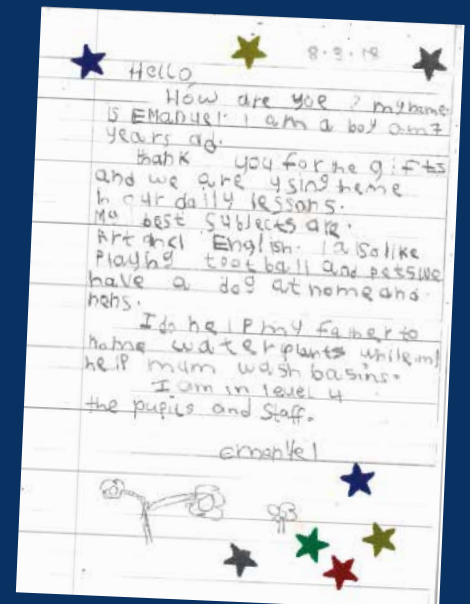 8.3.18
Hello
How are yoe ? my name
is EManuel. I am a boy am 7
years ad.
thank you for he gifts
and we are using heme
in our daily lessons.
My best subjects are.
Art and English. I also like
Playing tootball and pets we
have a dog at home and
hens.
I do help my father to
home water plants while my
help mum wash basins.
I am in level 4
the pupils and staff.
emanuel